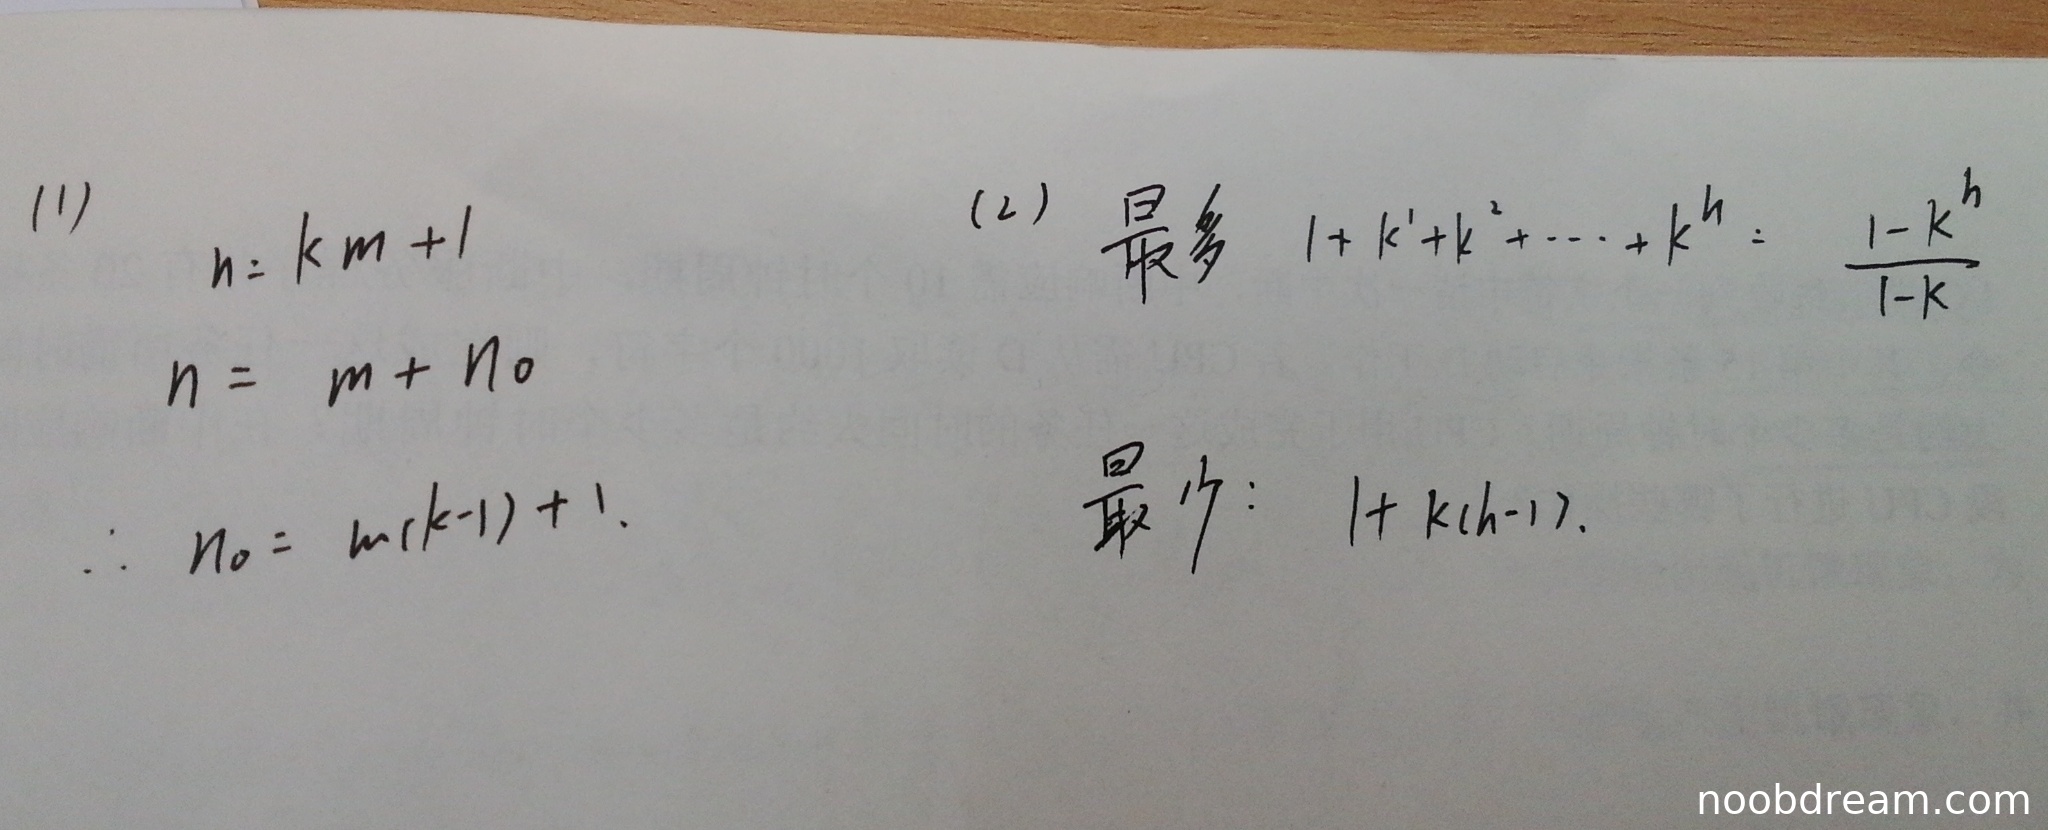 (1)
n = km + 1
n = m + n₀
∴ n₀ = m(k-1) + 1.
(2) 最多 1 + k¹ + k² + ··· + kʰ = (1-kʰ)/(1-k)
最少: 1 + k(h-1).
noobdream.com